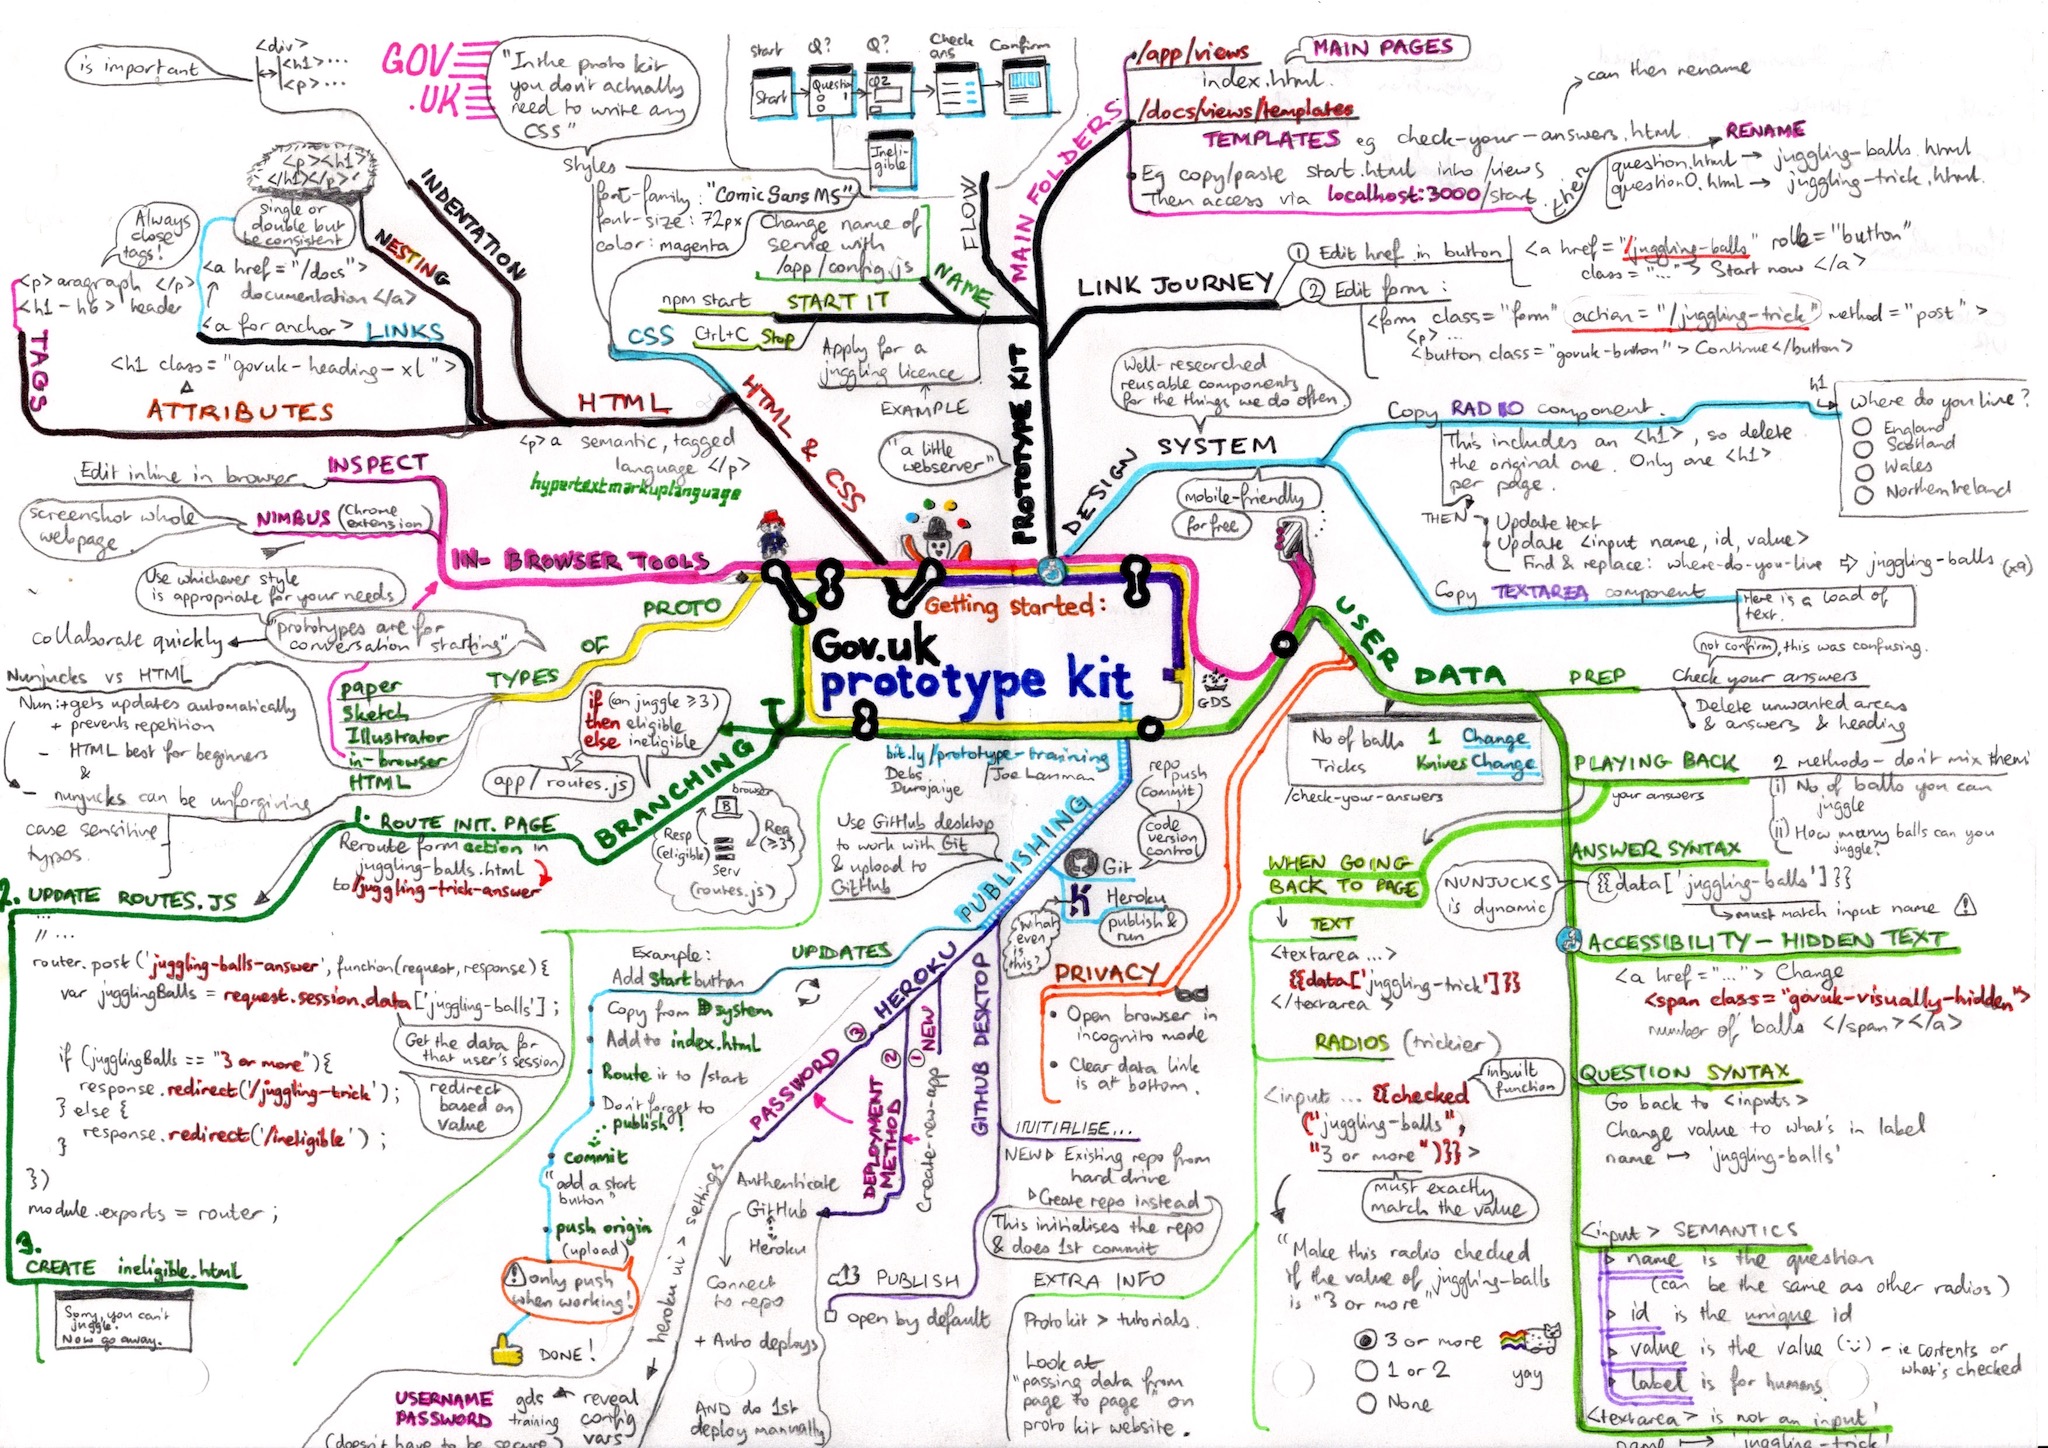 GOV
.UK
<div>
<h1>...
<p>...
is important
"In the proto kit
you don't actually
need to write any
CSS"
styles
font-family: "Comic Sans MS"
font-size: 72px
color: magenta
CSS
INDENTATION
<p><h1>
</h1></p>
NESTING
Always
close
tags!
single or
double but
be consistent
<p>aragraph </p>
<h1-h6> header
TAGS
<a href="/docs">
documentation </a>
<a for anchor> LINKS
<h1 class="govuk-heading-xl">
ATTRIBUTES
HTML
<p> a semantic, tagged
language </p>
hypertextmarkuplanguage
HTML & CSS
Start
Q?
Q?
Check
ans
Confirm
Start
Question
Q2
Ineli-
gible
FLOW
Change name of
service with
/app/config.js
NAME
npm start START IT
Ctrl+C Stop
Apply for a
juggling licence
EXAMPLE
"a little
webserver"
PROTOTYPE KIT
MAIN FOLDERS
/app/views
MAIN PAGES
index.html
/docs/views/templates
TEMPLATES eg check-your-answers.html
can then rename
Eg copy/paste start.html into /views
Then access via localhost:3000/start
then
RENAME
question.html → juggling-balls.html
question0.html → juggling-trick.html
LINK JOURNEY
1 Edit href in button
<a href="/juggling-balls" role="button"
class="..."> Start now </a>
2 Edit form:
<form class="form" action="/juggling-trick" method="post">
<p>...
<button class="govuk-button"> Continue</button>
Well-researched
reusable components
for the things we do often
DESIGN SYSTEM
mobile-friendly
for free
Copy RADIO component.
This includes an <h1>, so delete
the original one. Only one <h1>
per page.
THEN
Update text
Update <input name, id, value>
Find & replace: where-do-you-live ⇨ juggling-balls (x9)
h1
Where do you live?
England
Scotland
Wales
Northern Ireland
Copy TEXTAREA component
Here is a load of
text.
INSPECT
Edit inline in browser
NIMBUS (Chrome
extension)
screenshot whole
webpage
IN-BROWSER TOOLS
Use whichever style
is appropriate for your needs
collaborate quickly
"prototypes are for
conversation starting"
TYPES OF PROTO
paper
Sketch
Illustrator
in-browser
HTML
Nunjucks vs HTML
Nun: + gets updates automatically
+ prevents repetition
- HTML best for beginners
&
- nunjucks can be unforgiving
case sensitive
typos
Getting started:
Gov.uk
prototype kit
GDS
bit.ly/prototype-training
Debs
Durojaiye
/Joe Lanman
BRANCHING
if (can juggle ≥3)
then eligible
else ineligible
app/routes.js
browser
B
Resp
(eligible)
Req
≥3?
Serv
(routes.js)
1. ROUTE INIT. PAGE
Reroute form action in
juggling-balls.html
to /juggling-trick-answer
2. UPDATE ROUTES.JS
// ...
router.post('juggling-balls-answer', function(request, response) {
var jugglingBalls = request.session.data['juggling-balls'];
Get the data for
that user's session
if (jugglingBalls == "3 or more") {
response.redirect('/juggling-trick');
} else {
response.redirect('/ineligible');
}
redirect
based on
value
})
module.exports = router;
3.
CREATE ineligible.html
Sorry, you can't
juggle.
Now go away.
PUBLISHING
Use GitHub desktop
to work with Git
& upload to
GitHub
repo
push
commit
!
code
version
control
Git
Heroku
publish &
run
What
even
is
this?
UPDATES
Example:
Add start button
Copy from D system
Add to index.html
Route it to /start
Don't forget to
publish!
commit
"add a start
button"
push origin
(upload)
only push
when working!
DONE!
HEROKU
1 NEW
Create-new-app
2 DEPLOYMENT
METHOD
Authenticate
GitHub
Heroku
Connect
to repo
+ Auto deploys
AND do 1st
deploy manually
3 PASSWORD
heroku ui > settings
reveal
config
vars
USERNAME gds
PASSWORD training
(doesn't have to be secure)
GITHUB DESKTOP
INITIALISE...
NEW ▷ Existing repo from
hard drive
▷ Create repo instead
This initialises the repo
& does 1st commit
PUBLISH
open by default
USER DATA
PRIVACY
Open browser in
incognito mode
Clear data link
is at bottom.
No of balls 1 Change
Tricks Knives Change
/check-your-answers
PREP
not confirm, this was confusing.
Check your answers
Delete unwanted areas
& answers & heading
PLAYING BACK
your answers
2 methods - don't mix them!
i) No. of balls you can
juggle
ii) How many balls can you
juggle?
ANSWER SYNTAX
{{data['juggling-balls']}}
must match input name
NUNJUCKS
is dynamic
ACCESSIBILITY - HIDDEN TEXT
<a href="..."> Change
<span class="govuk-visually-hidden">
number of balls </span></a>
QUESTION SYNTAX
Go back to <inputs>
Change value to what's in label
name ↦ 'juggling-balls'
<input> SEMANTICS
name is the question
(can be the same as other radios)
id is the unique id
value is the value - ie contents or
what's checked
label is for humans
<textarea> is not an input!
name ↦ 'juggling-trick'
WHEN GOING
BACK TO PAGE
TEXT
<textarea ...>
{{data['juggling-trick']}}
</textarea>
RADIOS (trickier)
inbuilt
function
<input ... {{checked
("juggling-balls",
"3 or more")}}>
must exactly
match the value
"Make this radio checked
if the value of juggling-balls
is "3 or more"
3 or more
1 or 2
None
yay
EXTRA INFO
Proto kit > tutorials.
Look at
"passing data from
page to page" on
proto kit website.